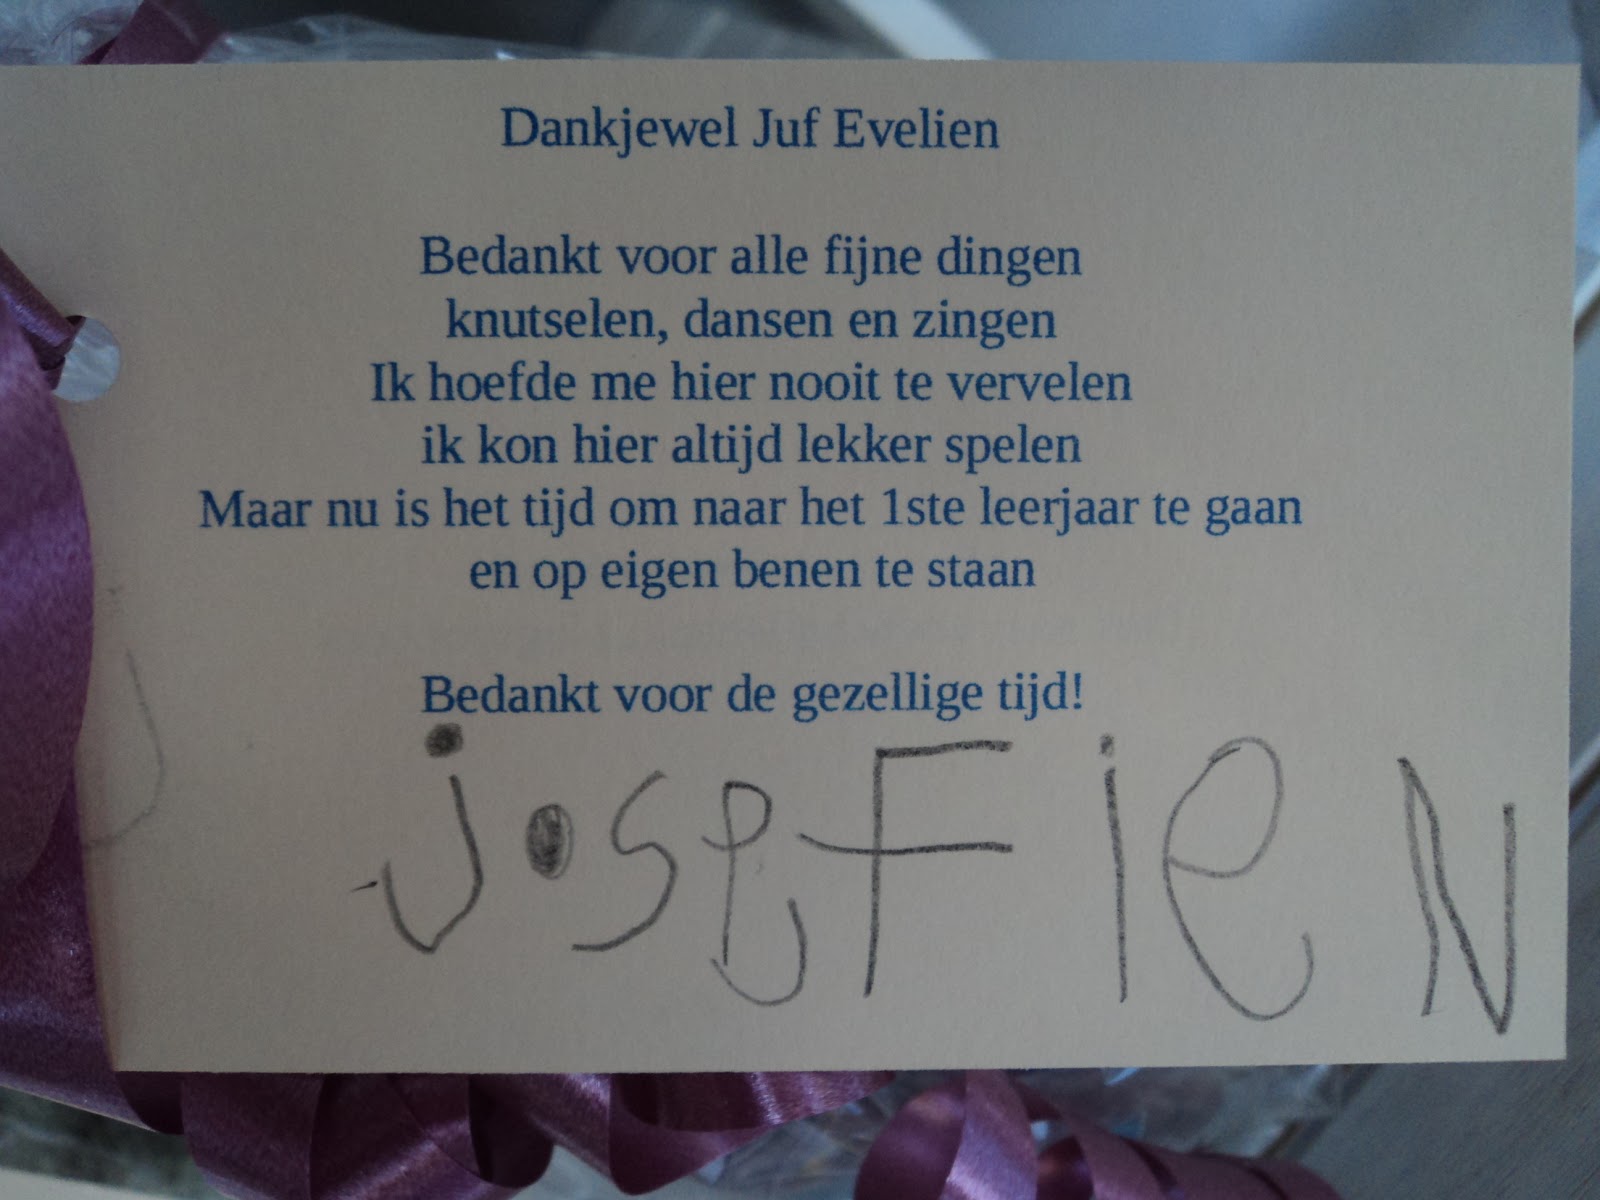 Dankjewel Juf Evelien
Bedankt voor alle fijne dingen
knutselen, dansen en zingen
Ik hoefde me hier nooit te vervelen
ik kon hier altijd lekker spelen
Maar nu is het tijd om naar het 1ste leerjaar te gaan
en op eigen benen te staan
Bedankt voor de gezellige tijd!
joseFieN